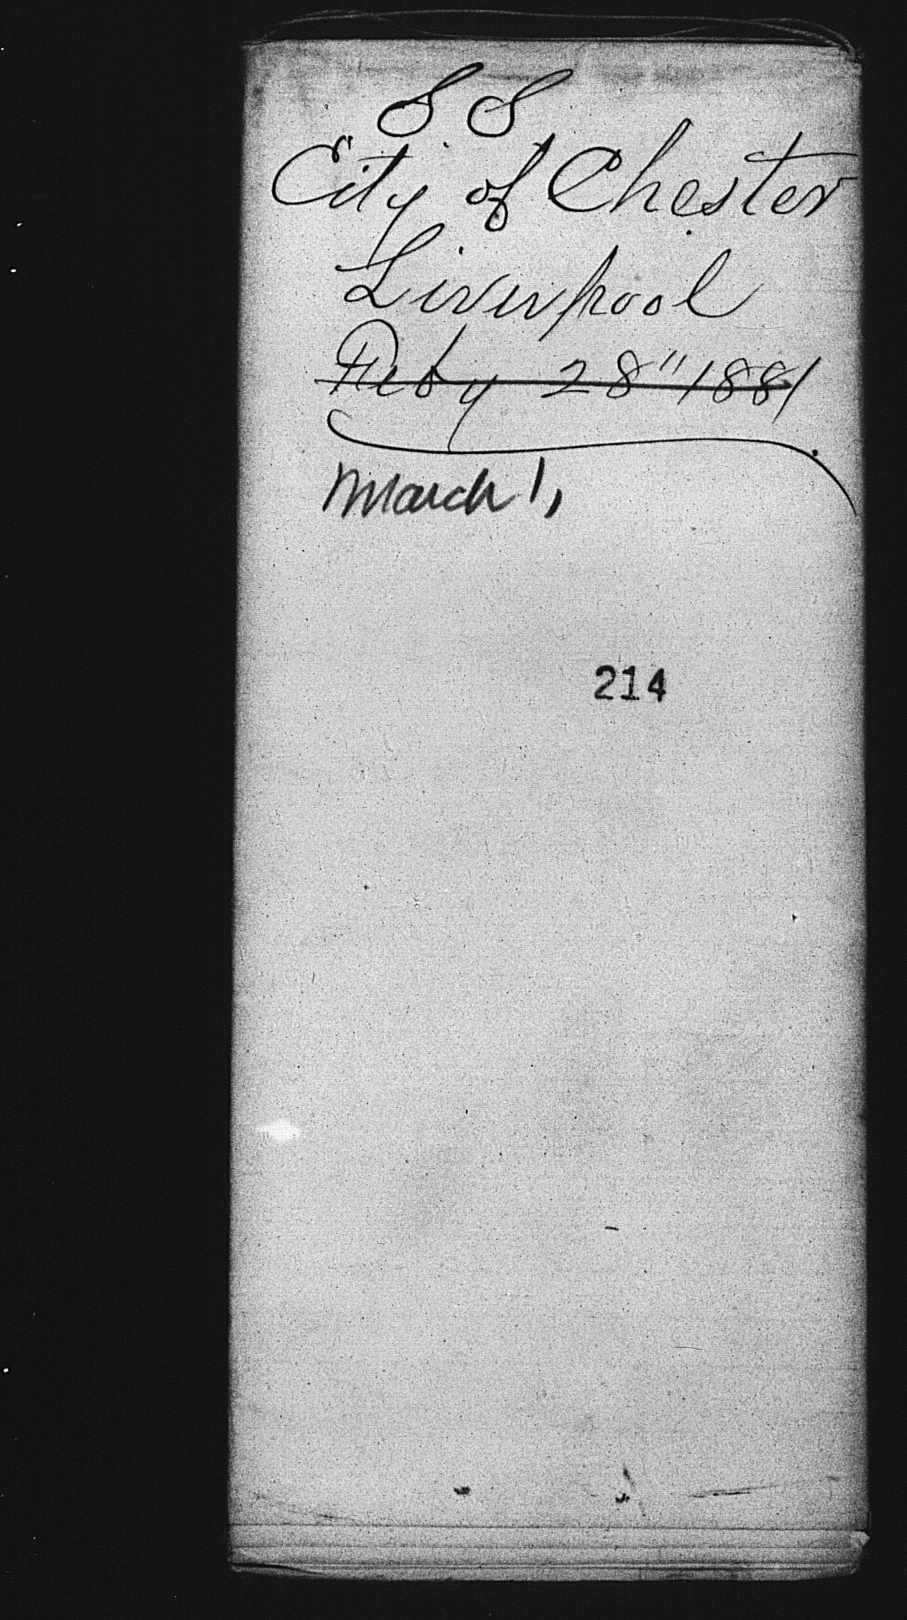 S S
City of Chester
Liverpool
Feby 28" 1881
March 1,
214